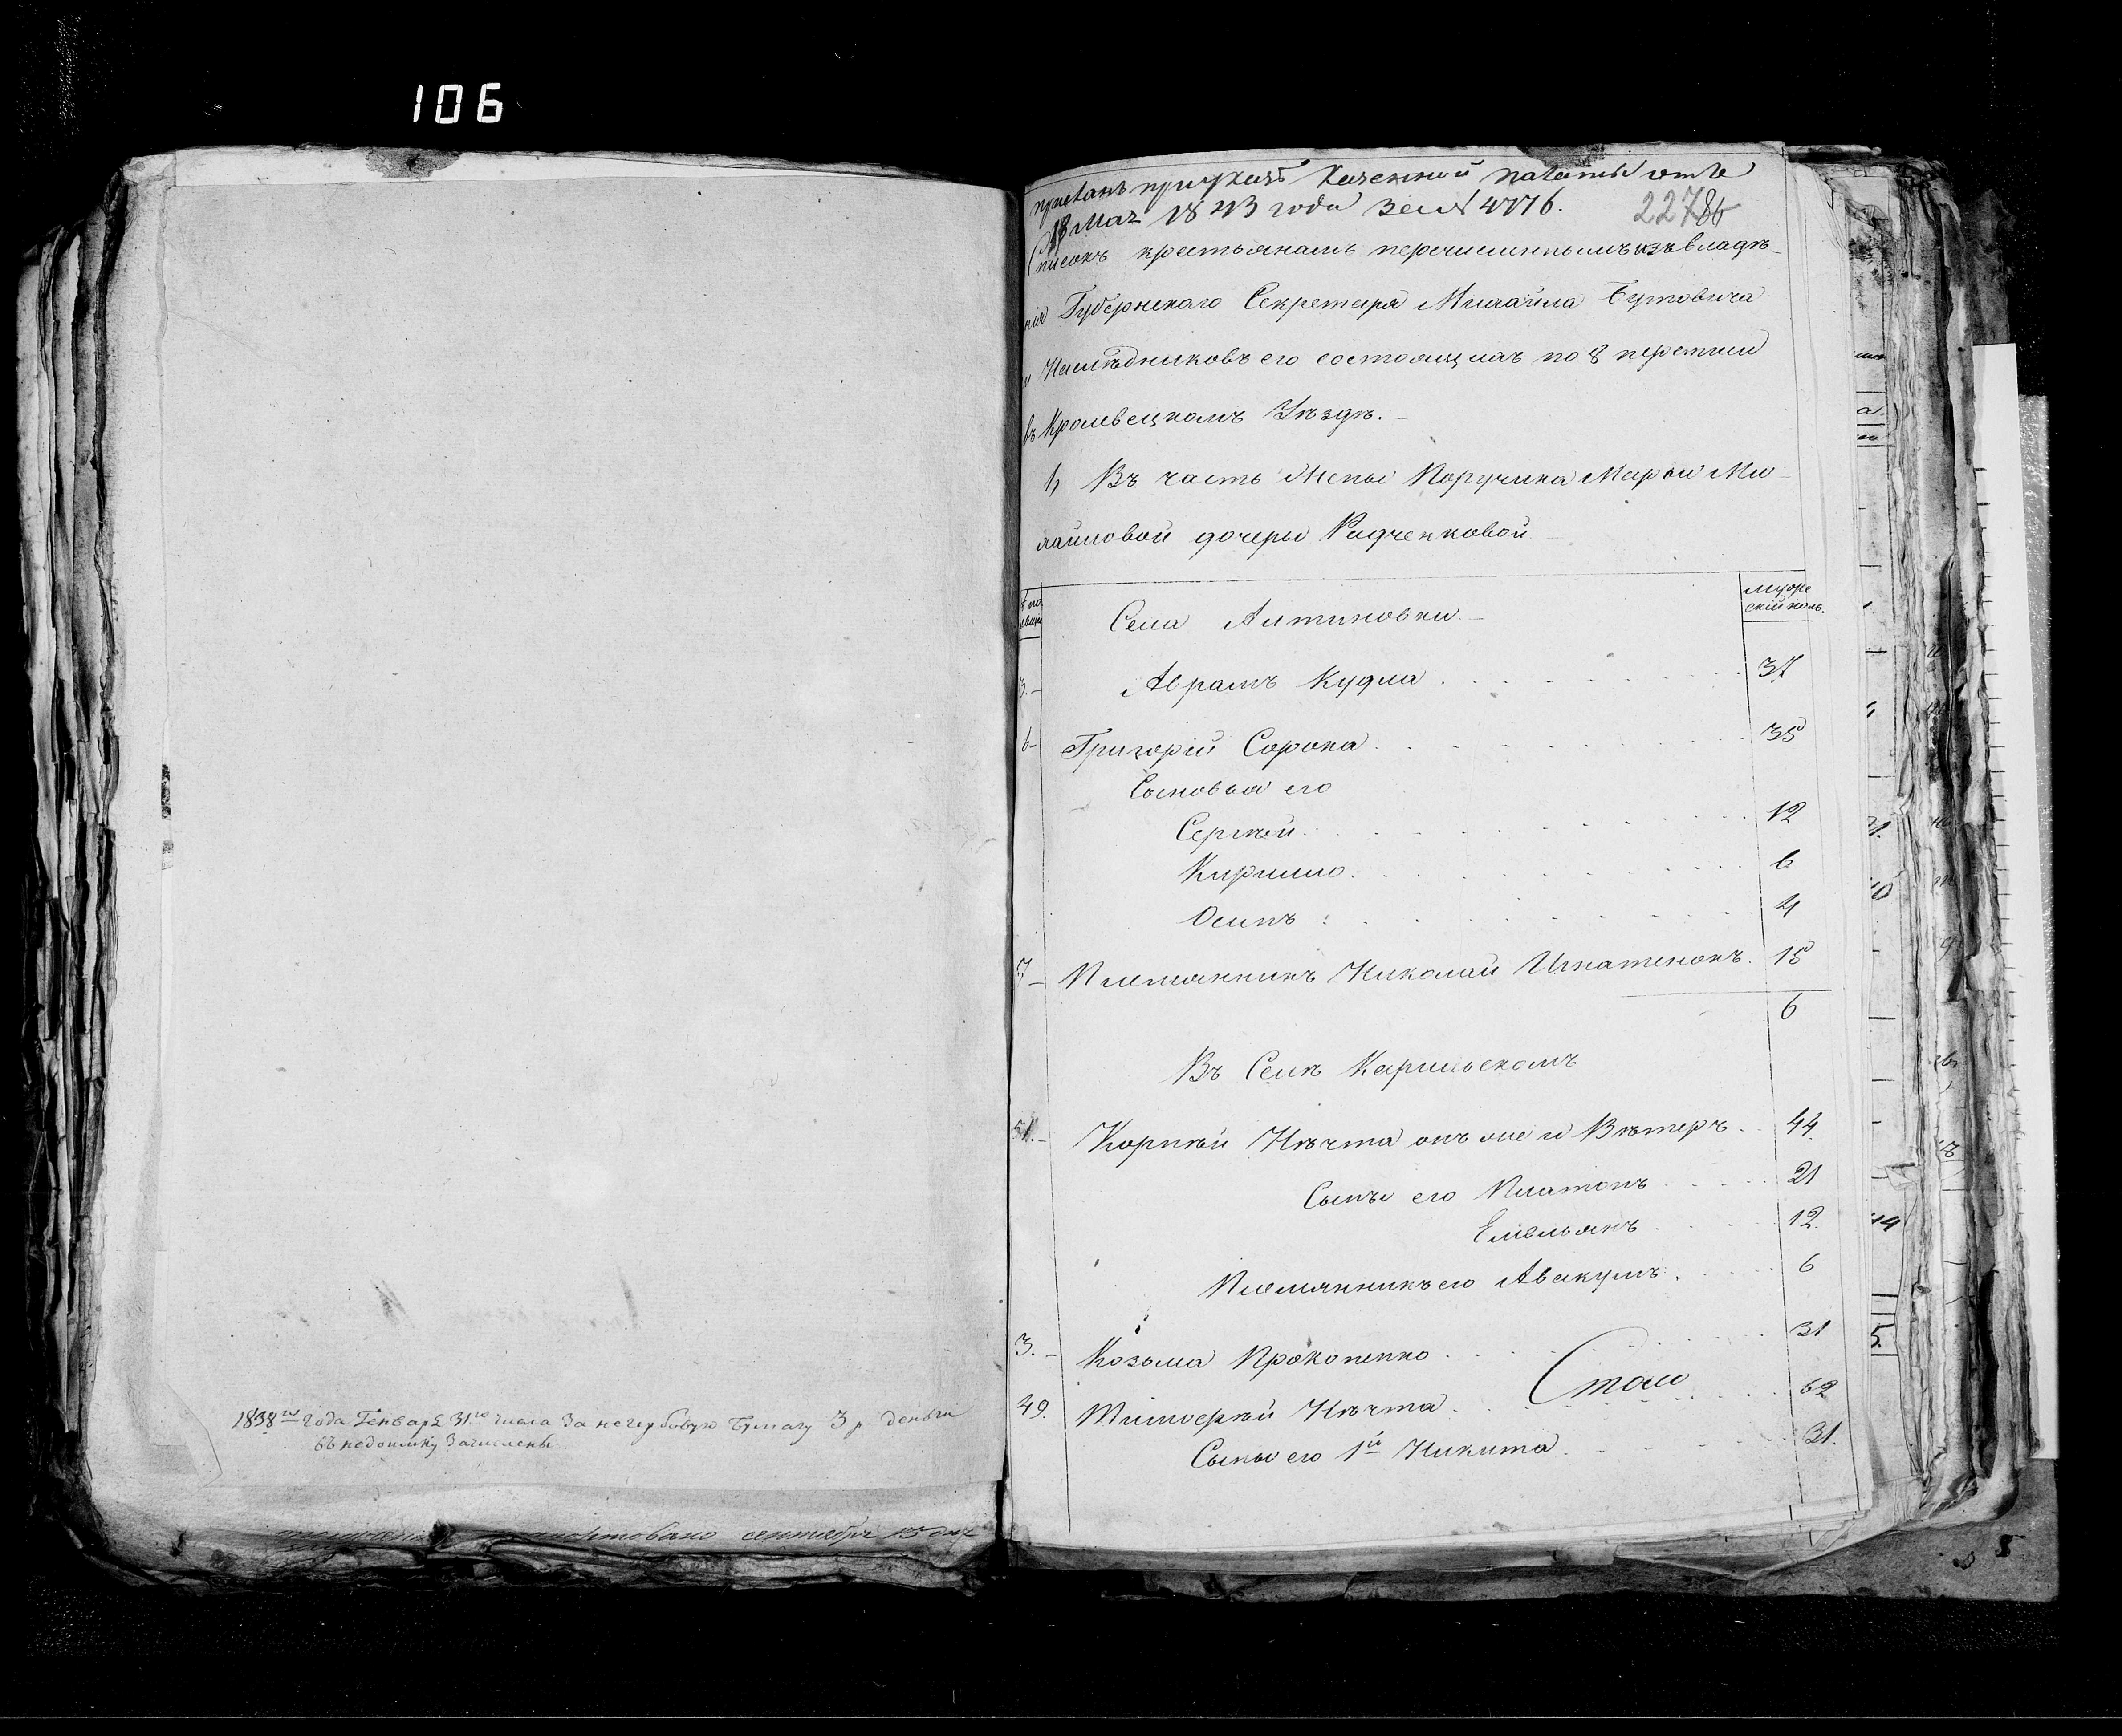 106
1838го года Генваря 31го числа За негербовую бумагу 3 р. деньги
въ недоимку Зачислены
сентября 15 дня
присланъ при указѣ Казенной палаты отъ
13 Мая 1843 года За № 4776.
2278
Списокъ крестьянамъ перечисленнымъ изъ владѣ-
нія Губернскаго Секретаря Михайла Бутовича
и Наслѣдниковъ его состоящихъ по 8 переписи
въ Кролевецкомъ Уѣздѣ.
1, Въ часть Жены Поручика Марьи Ми-
хайловой дочери Радченковой
мужескій полъ.
Села Алтиновки
3. Аврамъ Кудла 37
6 Григорій Сорока 35
Сыновья его
Сергѣй 12
Кирило 6
Осипъ 4
7 Племянникъ Николай Игнатенокъ 15
6
Въ Селѣ Карильскомъ
51. Корнѣй Нѣчта онъ же и Вѣтеръ 44.
Сынъ его Платонъ 21
Емельянъ 12.
Племянникъ его Авакумъ 6
3. Козьма Прокопенко 31
49. Тимофѣй Нѣчта 62
Стат
Сыны его 1й Никита 31.